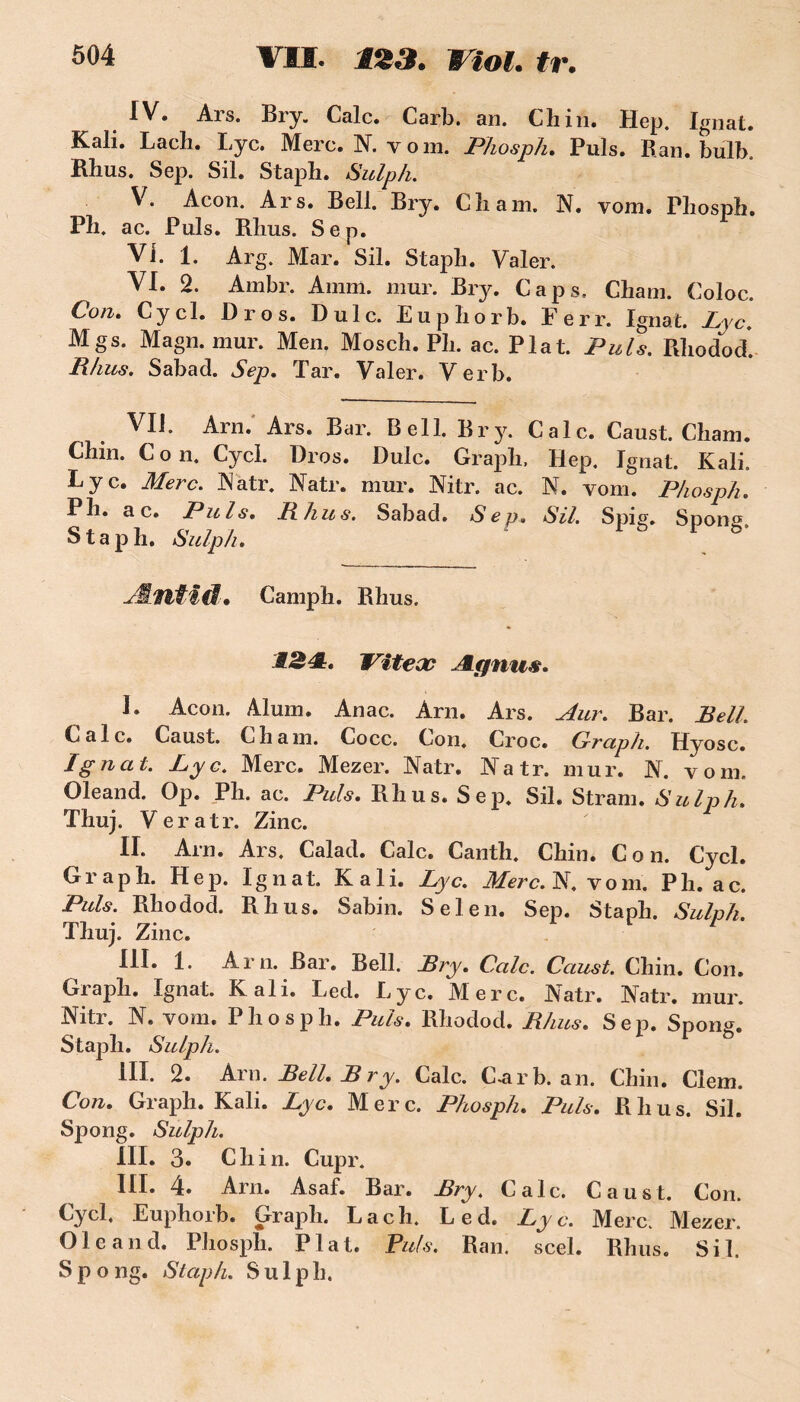 504 VII. 123. Viol. tr.
IV. Ars. Bry. Calc. Carb. an. Chin. Hep. Ignat.
Kali. Lach. Lyc. Merc. N. vom. Phosph. Puls. Ran. bulb.
Rhus. Sep. Sil. Staph. Sulph.
V. Acon. Ars. Bell. Bry. Cham. N. vom. Phosph.
Ph. ac. Puls. Rhus. Sep.
VI. 1. Arg. Mar. Sil. Staph. Valer.
VI. 2. Ambr. Amm. mur. Bry. Caps. Cham. Coloc.
Con. Cycl. Dros. Dulc. Euphorb. Ferr. Ignat. Lyc.
Mgs. Magn. mur. Men. Mosch. Ph. ac. Plat. Puls. Rhodod.
Rhus. Sabad. Sep. Tar. Valer. Verb.
VII. Arn. Ars. Bar. Bell. Bry. Calc. Caust. Cham.
Chin. Con. Cycl. Dros. Dulc. Graph. Hep. Ignat. Kali.
Lyc. Merc. Natr. Natr. mur. Nitr. ac. N. vom. Phosph.
Ph. ac. Puls. Rhus. Sabad. Sep. Sil. Spig. Spong.
Staph. Sulph.
Antid. Camph. Rhus.
124. Vitex Agnus.
I. Acon. Alum. Anac. Arn. Ars. Aur. Bar. Bell.
Calc. Caust. Cham. Cocc. Con. Croc. Graph. Hyosc.
Ignat. Lyc. Merc. Mezer. Natr. Natr. mur. N. vom.
Oleand. Op. Ph. ac. Puls. Rhus. Sep. Sil. Stram. Sulph.
Thuj. Veratr. Zinc.
II. Arn. Ars. Calad. Calc. Canth. Chin. Con. Cycl.
Graph. Hep. Ignat. Kali. Lyc. Merc. N. vom. Ph. ac.
Puls. Rhodod. Rhus. Sabin. Selen. Sep. Staph. Sulph.
Thuj. Zinc.
III. 1. Arn. Bar. Bell. Bry. Calc. Caust. Chin. Con.
Graph. Ignat. Kali. Led. Lyc. Merc. Natr. Natr. mur.
Nitr. N. vom. Phosph. Puls. Rhodod. Rhus. Sep. Spong.
Staph. Sulph.
III. 2. Arn. Bell. Bry. Calc. Carb. an. Chin. Clem.
Con. Graph. Kali. Lyc. Merc. Phosph. Puls. Rhus. Sil.
Spong. Sulph.
III. 3. Chin. Cupr.
III. 4. Arn. Asaf. Bar. Bry. Calc. Caust. Con.
Cycl. Euphorb. Graph. Lach. Led. Lyc. Merc. Mezer.
Oleand. Phosph. Plat. Puls. Ran. scel. Rhus. Sil.
Spong. Staph. Sulph.